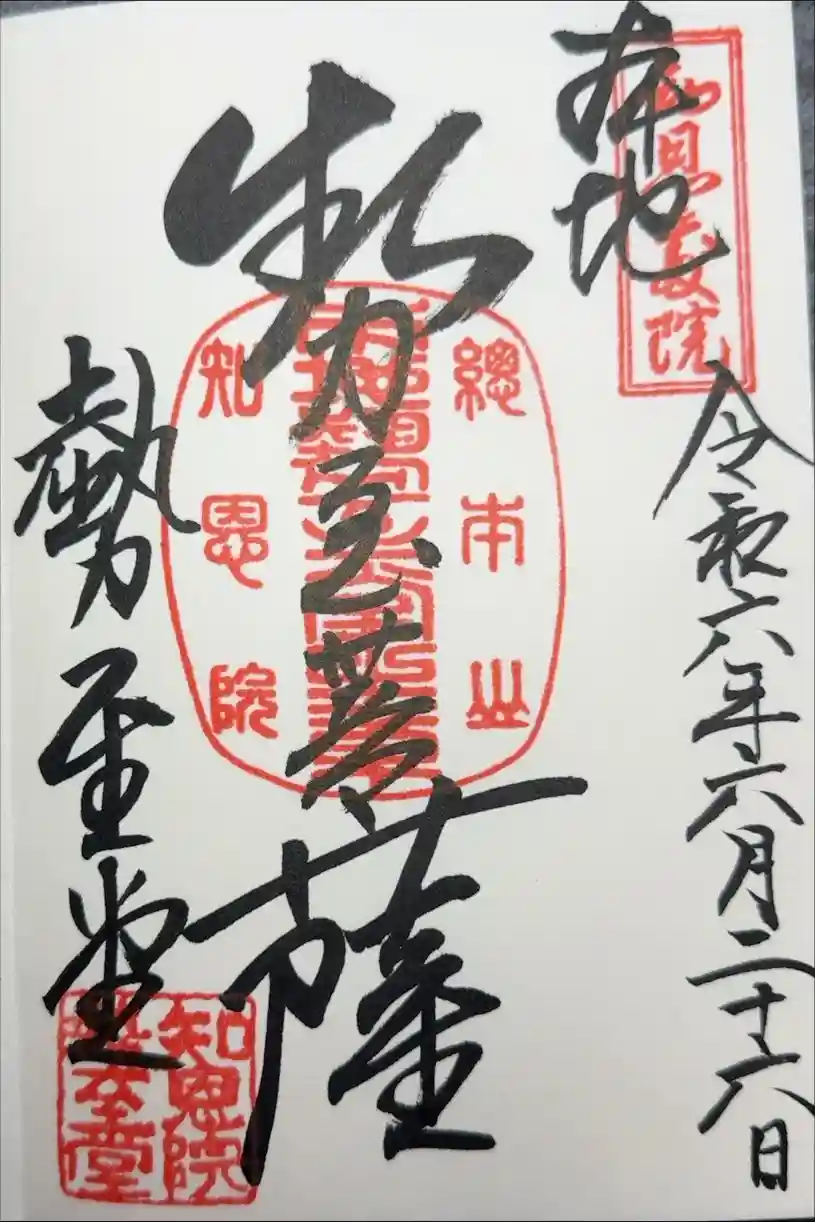 知恩教院
本地
令和六年六月二十六日
勢至菩薩
總本山
知恩院
勢至堂
知恩院
勢至堂